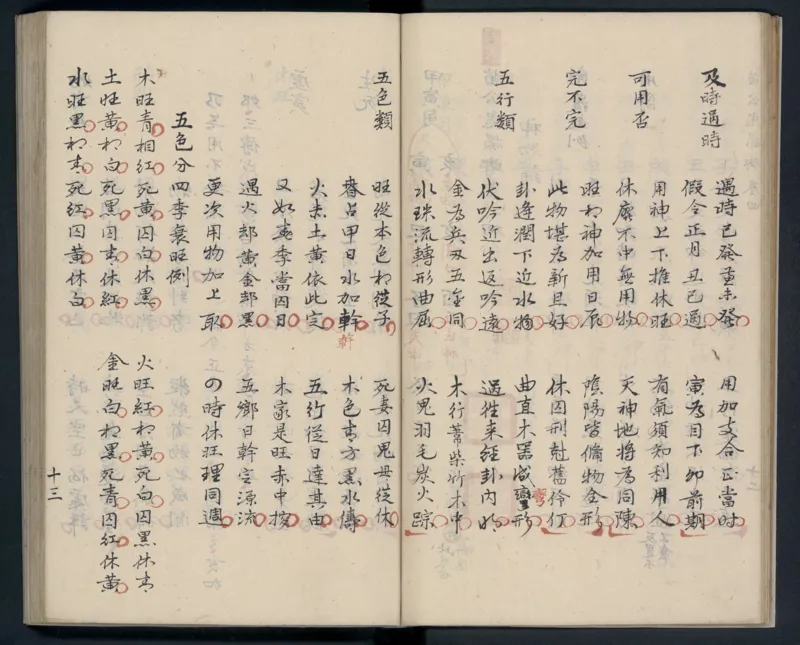 及時過時
過時已發盡未發　用加支合正當时
假令正月丑已過　寅為目下卯前期
可用否
用神上下推休旺　有氣須知利用人
休廢不中無用物　天神地將為同陳
完不完
旺相神加用日辰　陰陽皆備物全形
此物堪為新且好　休囚刑尅舊伶仃
五行類
卦逢潤下近水物　曲直木器咸彎形
彎
伏吟近出返吟遠　過徃来經卦內明
金為兵刃五金同　木行蓍柴竹木中
水珠流轉形曲屈　火鬼羽毛炭火踪
五色類
旺從本色相從子　死妻囚鬼母從休
春占甲日水加幹　木色青方黑水傳
幹
火赤土黄依此定　五行從日達其由
又如春季當囚日　木家是旺赤中按
遇火部黄金部黑　五鄉日幹定源流
更次用物加上取　四時休旺理同週
五色分四季衰旺例
木旺青相紅死黄囚白休黑　火旺紅相黄死白囚黑休青
土旺黄相白死黑囚青休紅　金旺白相黑死青囚紅休黄
水旺黑相青死紅囚黄休白
十三